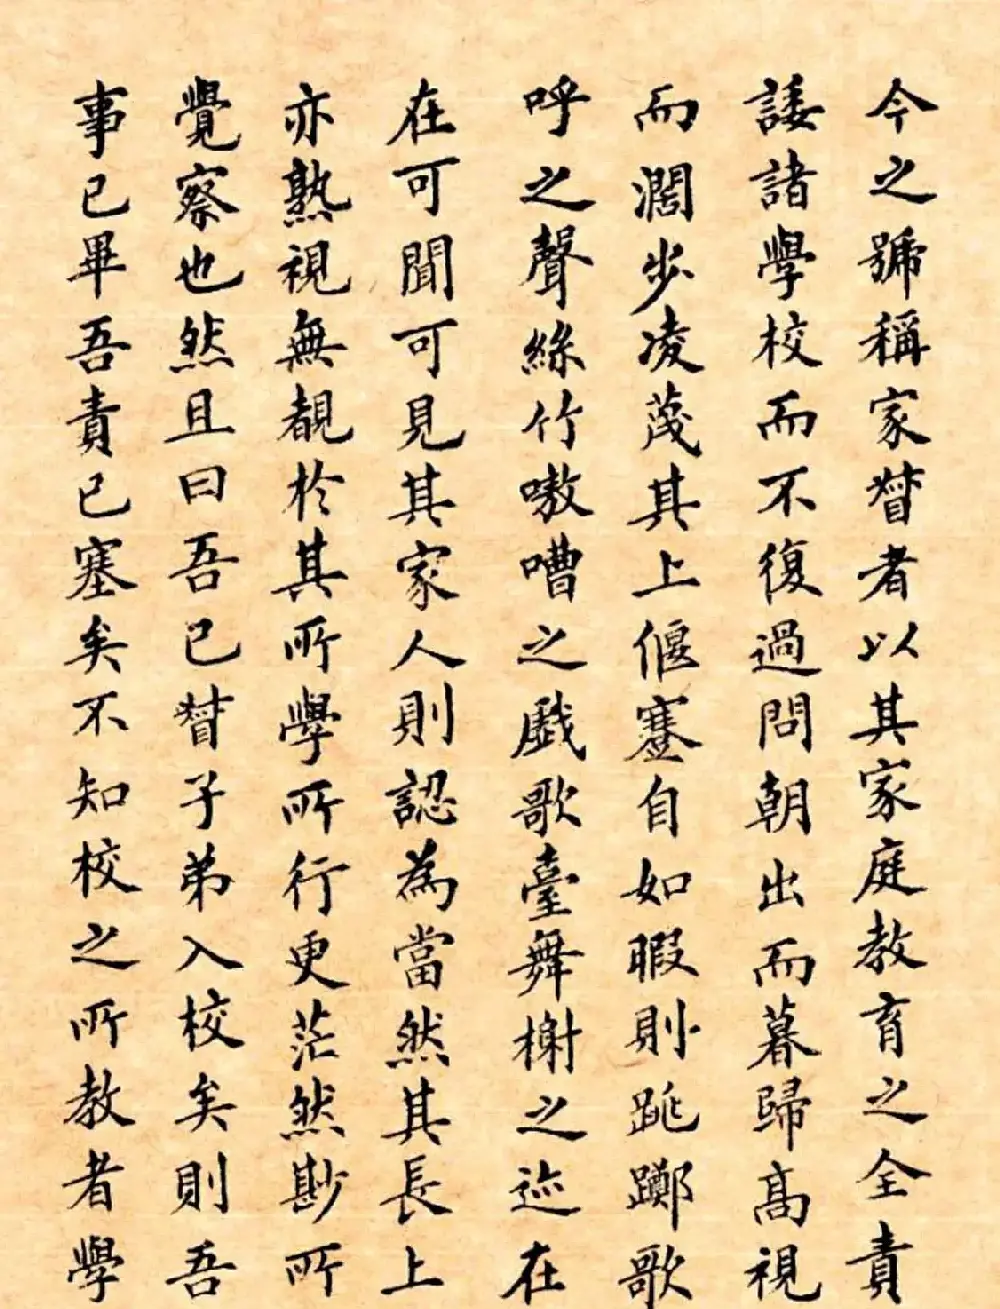 今之號稱家督者以其家庭教育之全責
諉諸學校而不復過問朝出而暮歸高視
而濶步凌蔑其上偃蹇自如暇則跳躑歌
呼之聲絲竹嗷嘈之戲歌臺舞榭之迹在
在可聞可見其家人則認為當然其長上
亦熟視無覩於其所學所行更茫然尠所
覺察也然且曰吾已督子弟入校矣則吾
事已畢吾責已塞矣不知校之所教者學